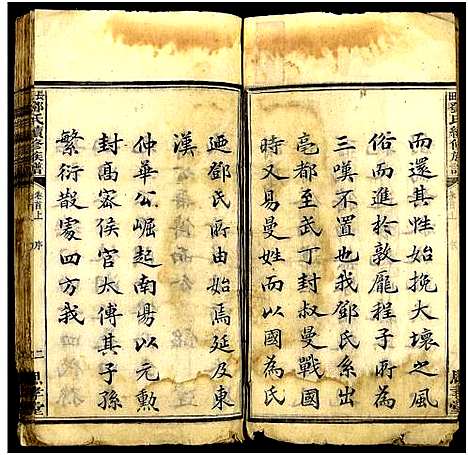 而還其性始挽大壞之風
俗而進於敦龐程子所為
三嘆不置也我鄧氏系出
亳都至武丁封叔曼戰國
時又易曼姓而以國為氏
鄧氏續修族譜
卷首上
序
迺鄧氏所由始焉延及東
漢
仲華公崛起南陽以元勲
封高密侯官太傅其子孫
繁衍散處四方我
鄧氏續修族譜
卷首上
序